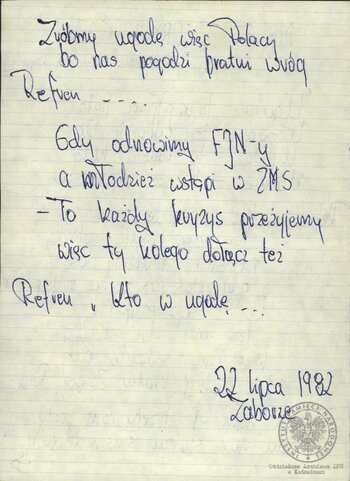 Zróbmy ugodę więc Polacy
bo nas pogodzi bratni wróg
Refren - - - .
Gdy odnowimy FJN-y
a młodzież wstąpi w ZMS
- To każdy kryzys przeżyjemy
więc ty kolego dołącz też
Refren „ Kto w ugodę - - .
22 lipca 1982
Zaborze
INSTYTUT PAMIĘCI NARODOWEJ
Oddziałowe Archiwum IPN
w Katowicach